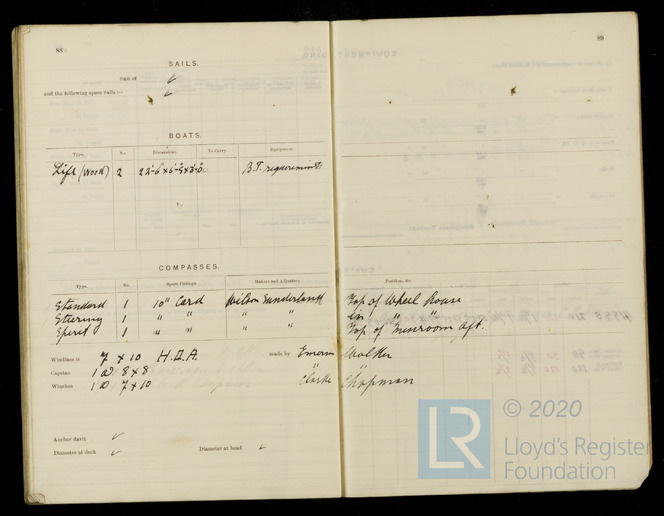 88
89
SAILS.
Suit of ✓
and the following spare Sails :— ✓
BOATS.
Type. No. Dimensions. To Carry. Equipment.
Life (Wood) 2 22'-6" x 6'-9" x 3'-0" B.T. requirements
COMPASSES.
Type. No. Spare Fittings. Makers and Adjusters Position, &c.
Standard 1 10" Card Wilson Sunderland Top of Wheel House
Steering 1 " " " " In " "
Spirit 1 " " " " Top of aft.
Windlass is 7 x 10 H.D.A. made by Emerson Walker
Capstan 1 @ 8 x 8 " "
Winches 10 7 x 10 Clarke Chapman
Anchor davit ✓
Diameter at deck ✓ Diameter at head ✓
LR
© 2020
Lloyd's Register
Foundation